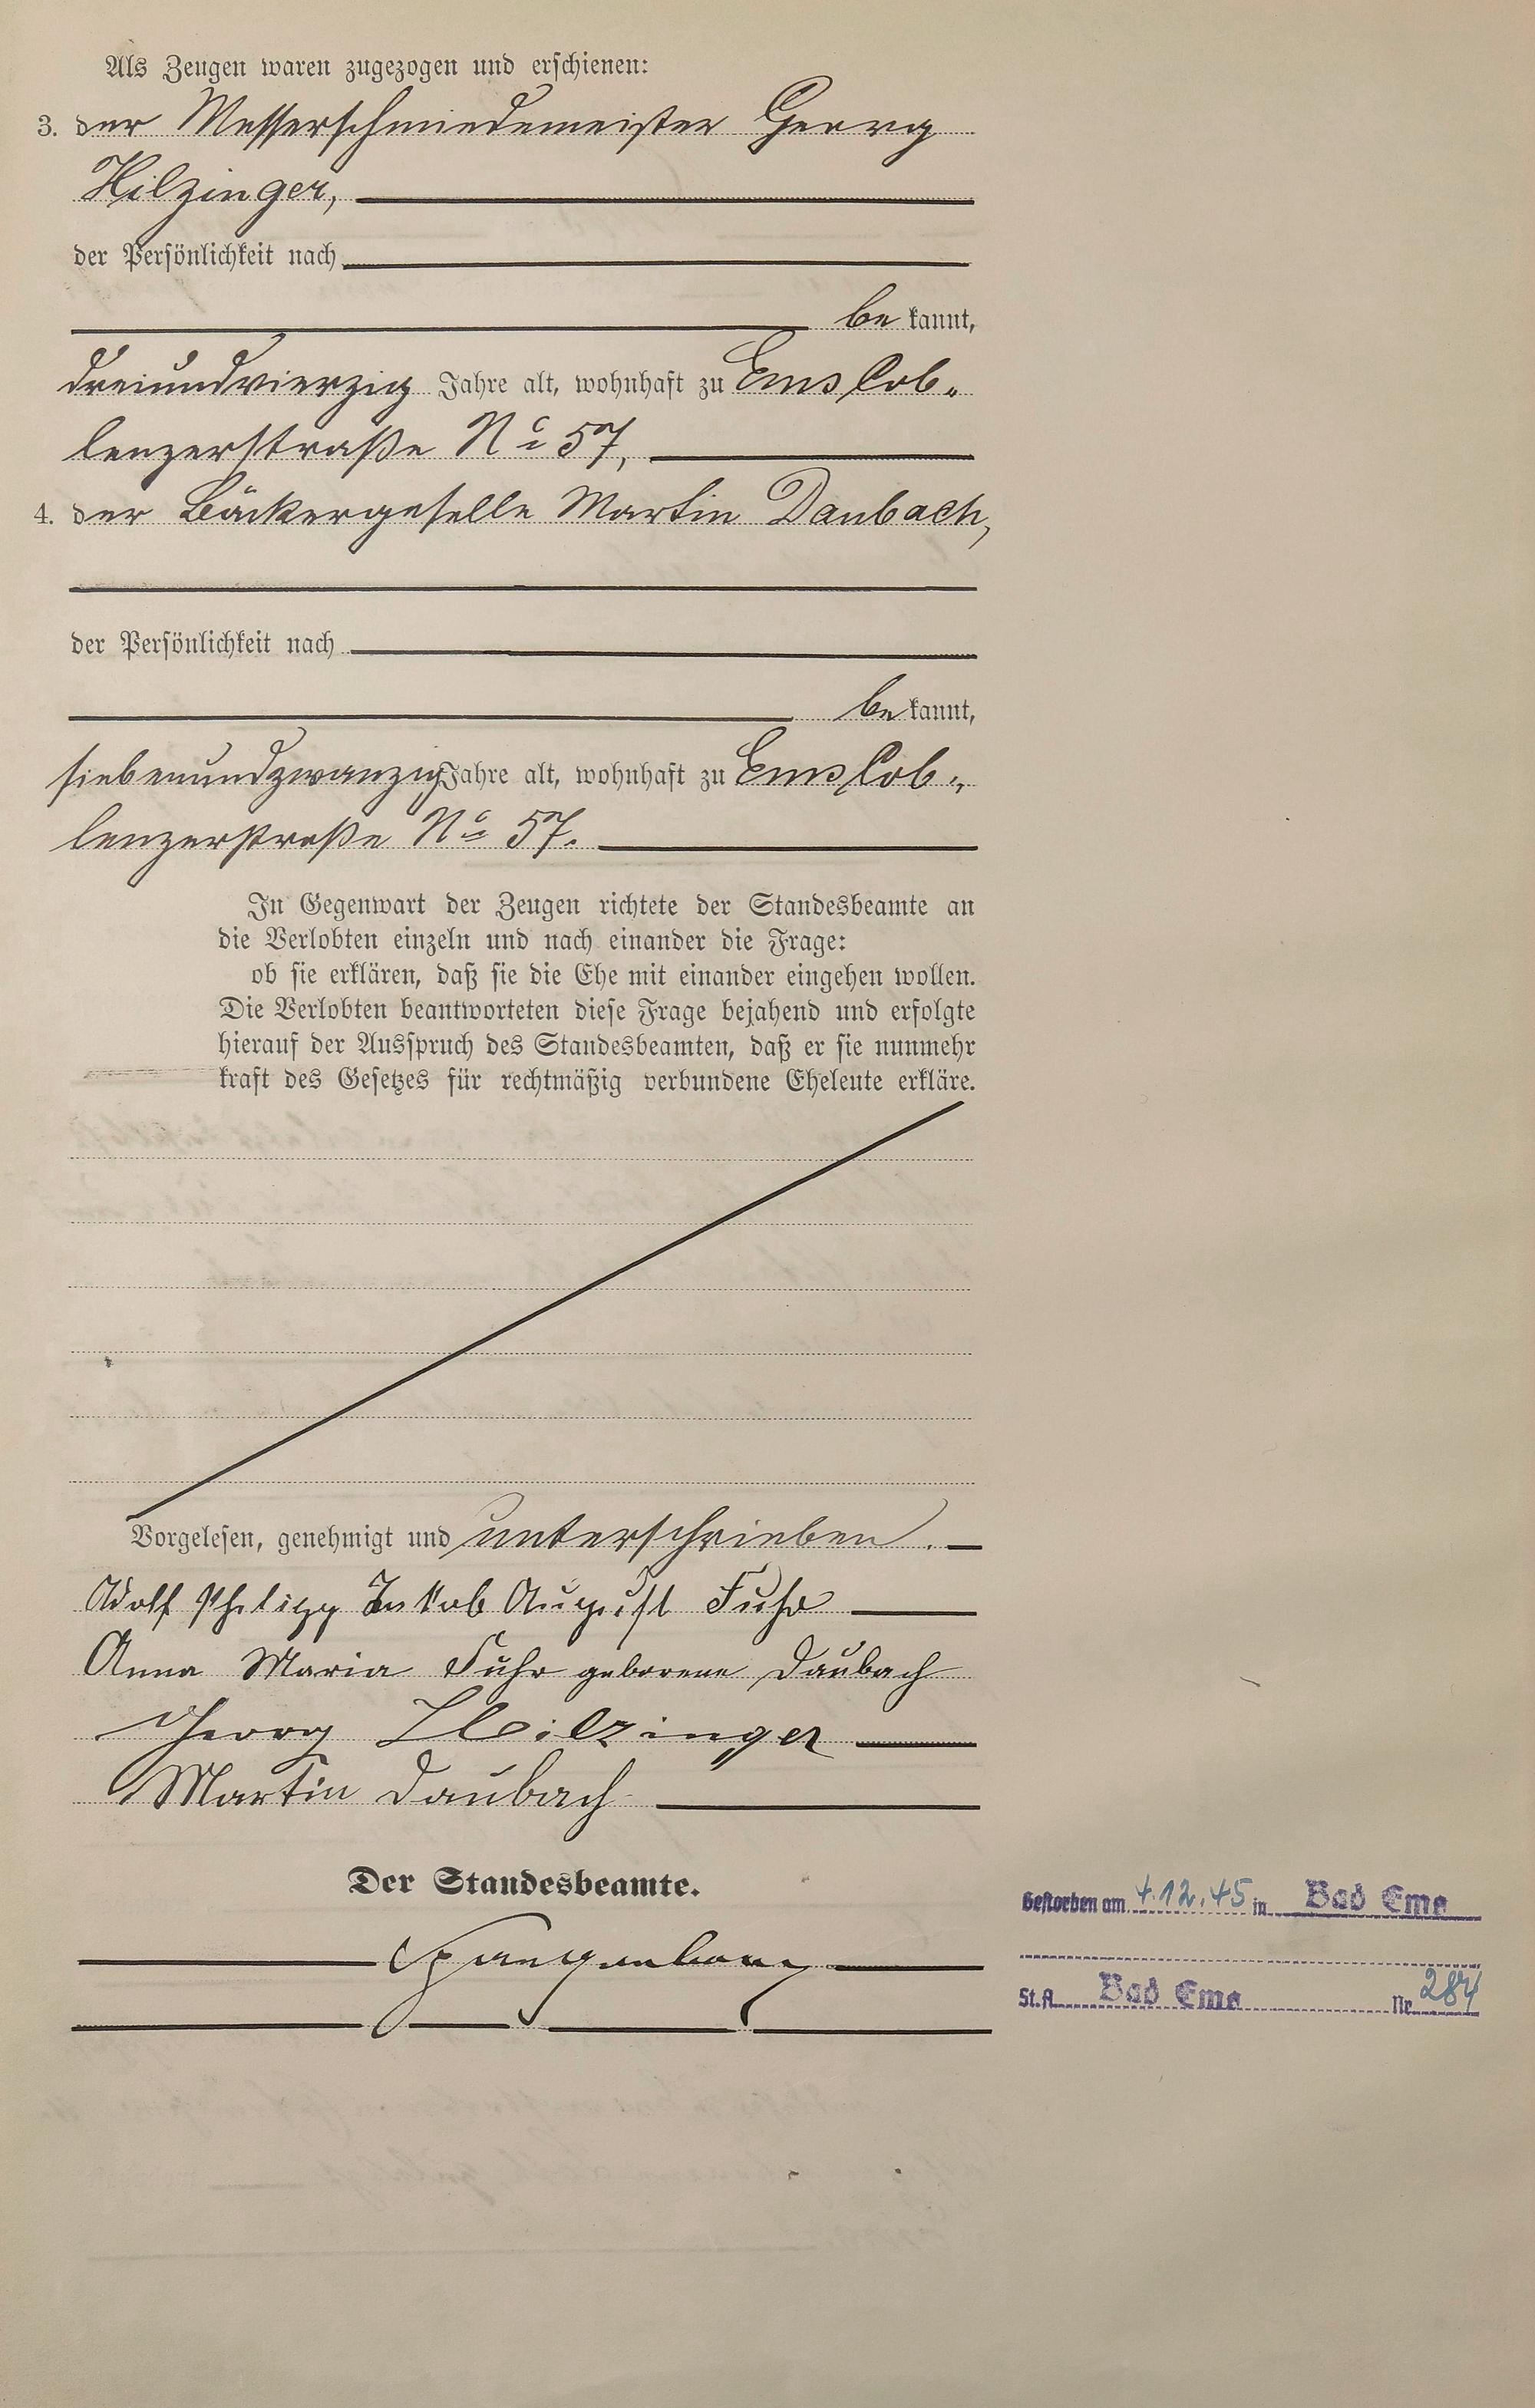 Als Zeugen waren zugezogen und erschienen:
3. der Messerschmiedemeister Georg
Hilzinger,
der Persönlichkeit nach
be kannt,
dreiundvierzig Jahre alt, wohnhaft zu Ems Cob„
lenzerstraße No 57,
4. der Bäckergeselle Martin Daubach,
der Persönlichkeit nach
be kannt,
siebenundzwanzig Jahre alt, wohnhaft zu Ems Cob„
lenzerstraße No 57.
In Gegenwart der Zeugen richtete der Standesbeamte an
die Verlobten einzeln und nach einander die Frage:
ob sie erklären, daß sie die Ehe mit einander eingehen wollen.
Die Verlobten beantworteten diese Frage bejahend und erfolgte
hierauf der Ausspruch des Standesbeamten, daß er sie nunmehr
kraft des Gesetzes für rechtmäßig verbundene Eheleute erkläre.
Vorgelesen, genehmigt und unterschrieben.
Adolf Philipp Jakob August Fuhr
Anna Maria Fuhr geborene Daubach
Georg Hilzinger
Martin Daubach
Der Standesbeamte.
Spangenberg
Gestorben am 4.12.45 in Bad Ems
St.A. Bad Ems Nr. 284